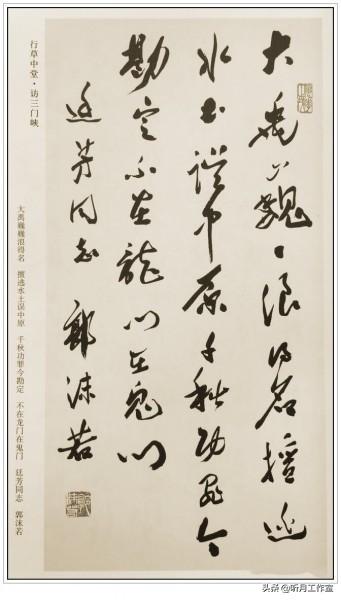 大禹巍々浪得名擅
水土誤中原千秋功罪今
勘定不在龍门在鬼门
廷芳同志 郭沫若
行草中堂·访三门峡
大禹巍巍浪得名 擅 水土误中原 千秋功罪今勘定 不在龙门在鬼门 廷芳同志 郭沫若
头条 @听月工作室